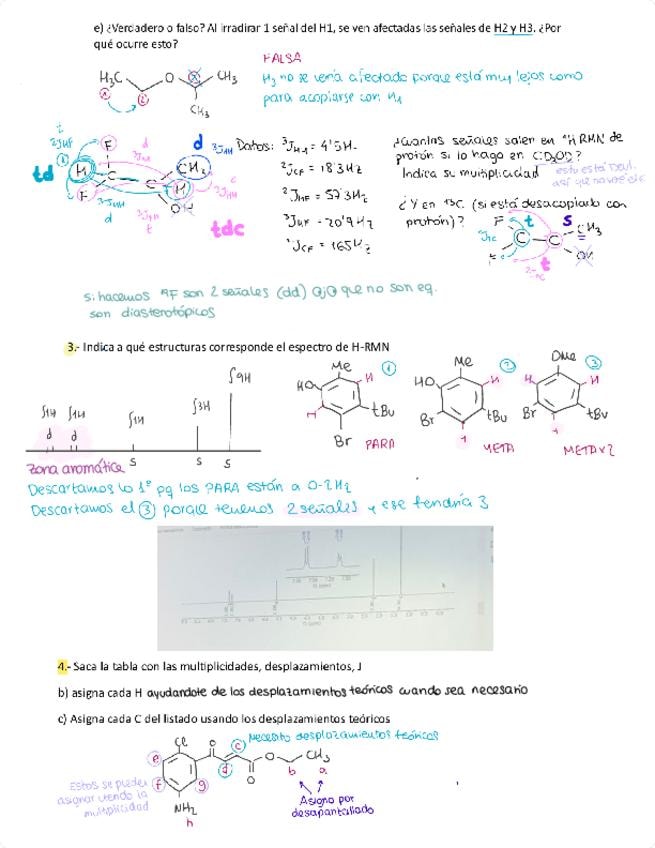 e) ¿Verdadero o falso? Al irradirar 1 señal del H1, se ven afectadas las señales de H2 y H3. ¿Por
qué ocurre esto?
FALSA
H₃ no se vería afectado porque está muy lejos como
para acoplarse con H₁
H₃C O CH₃
CH₃
Datos: ³J = 4'5H
²JCF = 18'3Hz
²JHF = 57'3Hz
³JHF = 20'9Hz
¹JCF = 165Hz
td
tdc
d
¿Cuántas señales salen en ¹H RMN de
protón si lo hago en CD₃OD?
Indica su multiplicidad
¿Y en ¹³C (si está desacoplado con
protón)?
F t s CH₃
C C
OH
Si hacemos ¹⁹F son 2 señales (dd) OJO que no son eq.
son diasterotópicos
3.- Indica a qué estructuras corresponde el espectro de H-RMN
∫1H ∫1H ∫1H ∫3H ∫9H
d d s s s
zona aromática
Me ① HO H H tBu Br PARA
Me ② HO H Br tBu H META
OMe ③ H H Br tBu H META x2
Descartamos lo 1º pq los PARA están a 0-2Hz
Descartamos el ③ porque tenemos 2 señales y ese tendría 3
4.- Saca la tabla con las multiplicidades, desplazamientos, J
b) asigna cada H ayudandote de los desplazamientos teóricos cuando sea necesario
c) Asigna cada C del listado usando los desplazamientos teóricos
Necesito desplazamientos teóricos
Cl O O O CH₃
e f g d c b a
NH₂
h
Estos se pueden
asignar viendo la
multiplicidad
Asigno por
desapantallado